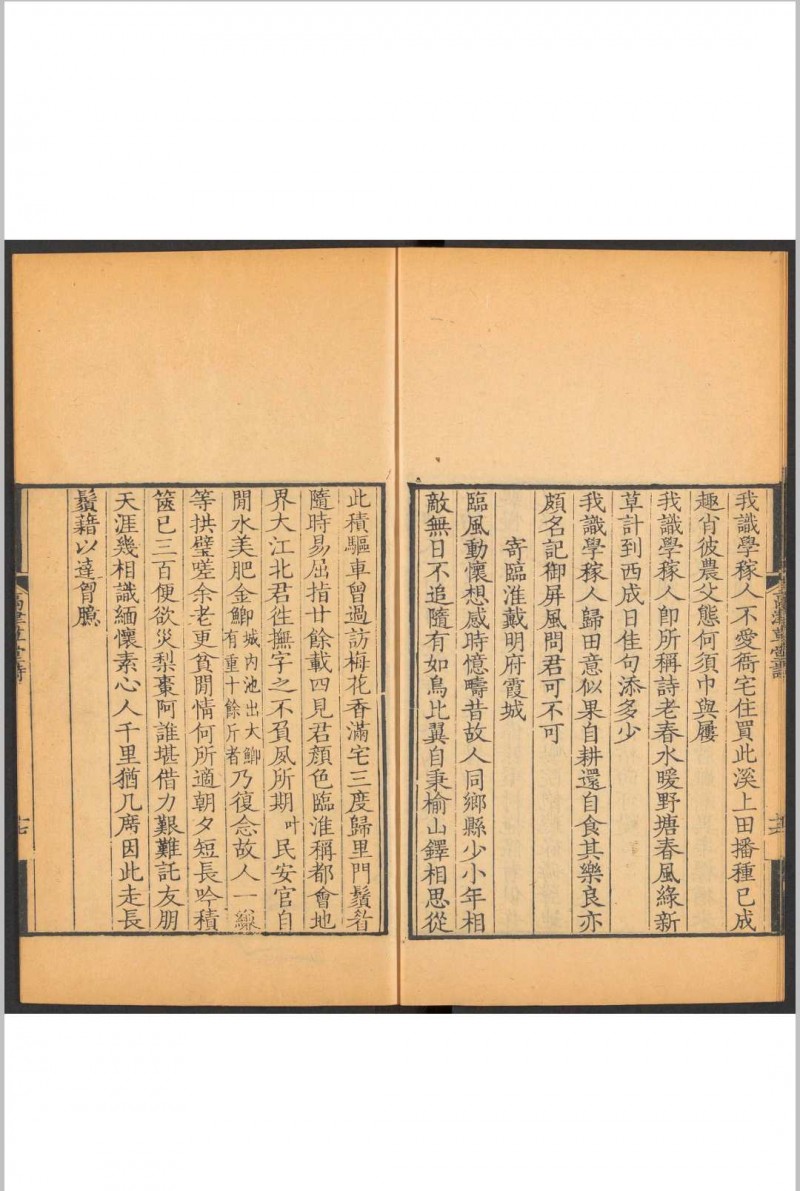 我識學稼人不愛衙宅住買此溪上田播種已成
趣肖彼農父態何須巾與屨
我識學稼人卽所稱詩老春水暖野塘春風綠新
草計到西成日佳句添多少
我識學稼人歸田意似果自耕還自食其樂良亦
頗名記御屏風問君可不可
寄臨淮戴明府霞城
臨風動懷想感時憶疇昔故人同鄉縣少小年相
敵無日不追隨有如鳥比翼自秉榆山鐸相思從
此積驅車曾過訪梅花香滿宅三度歸里門鬚眉
隨時易屈指廿餘載四見君顏色臨淮稱都會地
界大江北君徃撫字之不負夙所期叶民安官自
閒水美肥金鯽城內池出大鯽有重十餘斤者乃復念故人一
等拱璧嗟余老更貧閒情何所適朝夕短長吟積
篋已三百便欲災梨棗阿誰堪借力艱難託友朋
天涯幾相識緬懷素心人千里猶几席因此走長
鬚藉以達胷臆